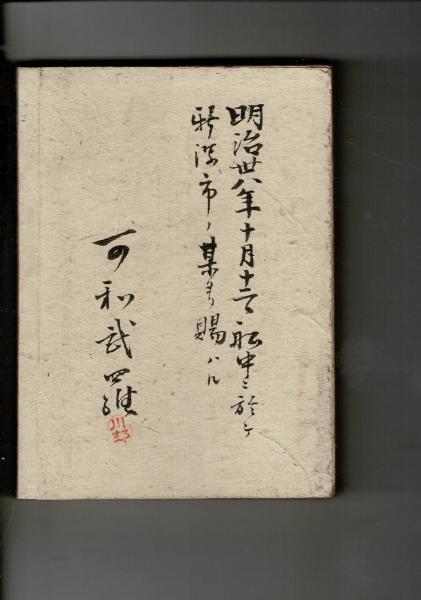 明治卅八年十月十二日船中ニ於テ
新潟市ノ某ヨリ賜ハル
可和武羅